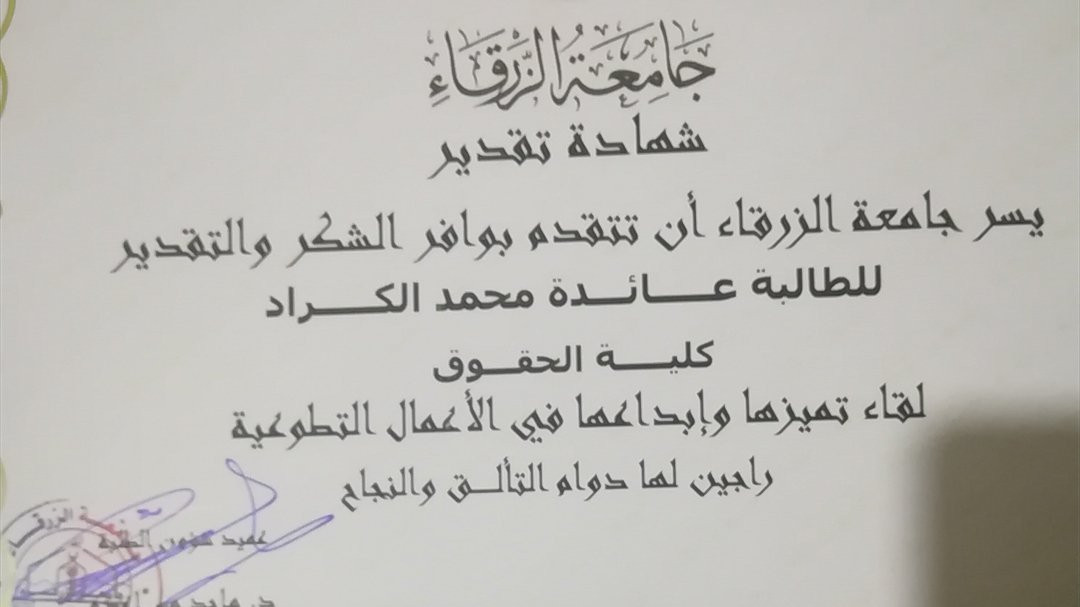 جَامِعَةُ الزَّرْقَاءِ
شهادة تقدير
يسر جامعة الزرقاء أن تتقدم بوافر الشكر والتقدير
للطالبة عـــائـــدة محمد الكـــراد
كليـــة الحقـــوق
لقاء تميزها وإبداعها في الأعمال التطوعية
راجين لها دوام التألــق والنجاح
عميد شؤون الطلبة